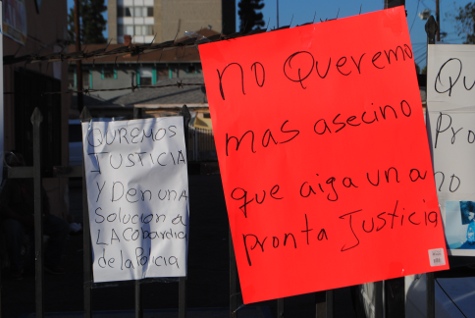 QUREMOS
JUSTICIA
Y DEN UNA
Solucion a
LA CObARdia
de la Policia
no Queremo
mas asecino
que aiga un a
pronta Justicia
Qu
Pro
no